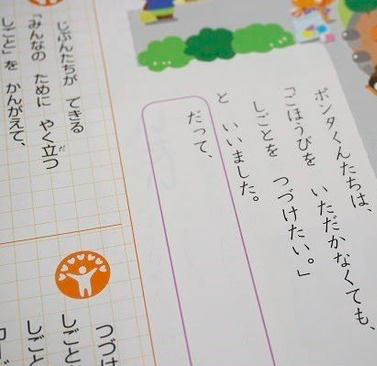 ポンタくんたちは、
「ごほうびを いただかなくても、
しごとを つづけたい。」
と いいました。
だって、
じぶんたちが できる
「みんなの ために やく立つ
だ
しごと」を かんがえて、
つづけ
しごと
しごと
カード